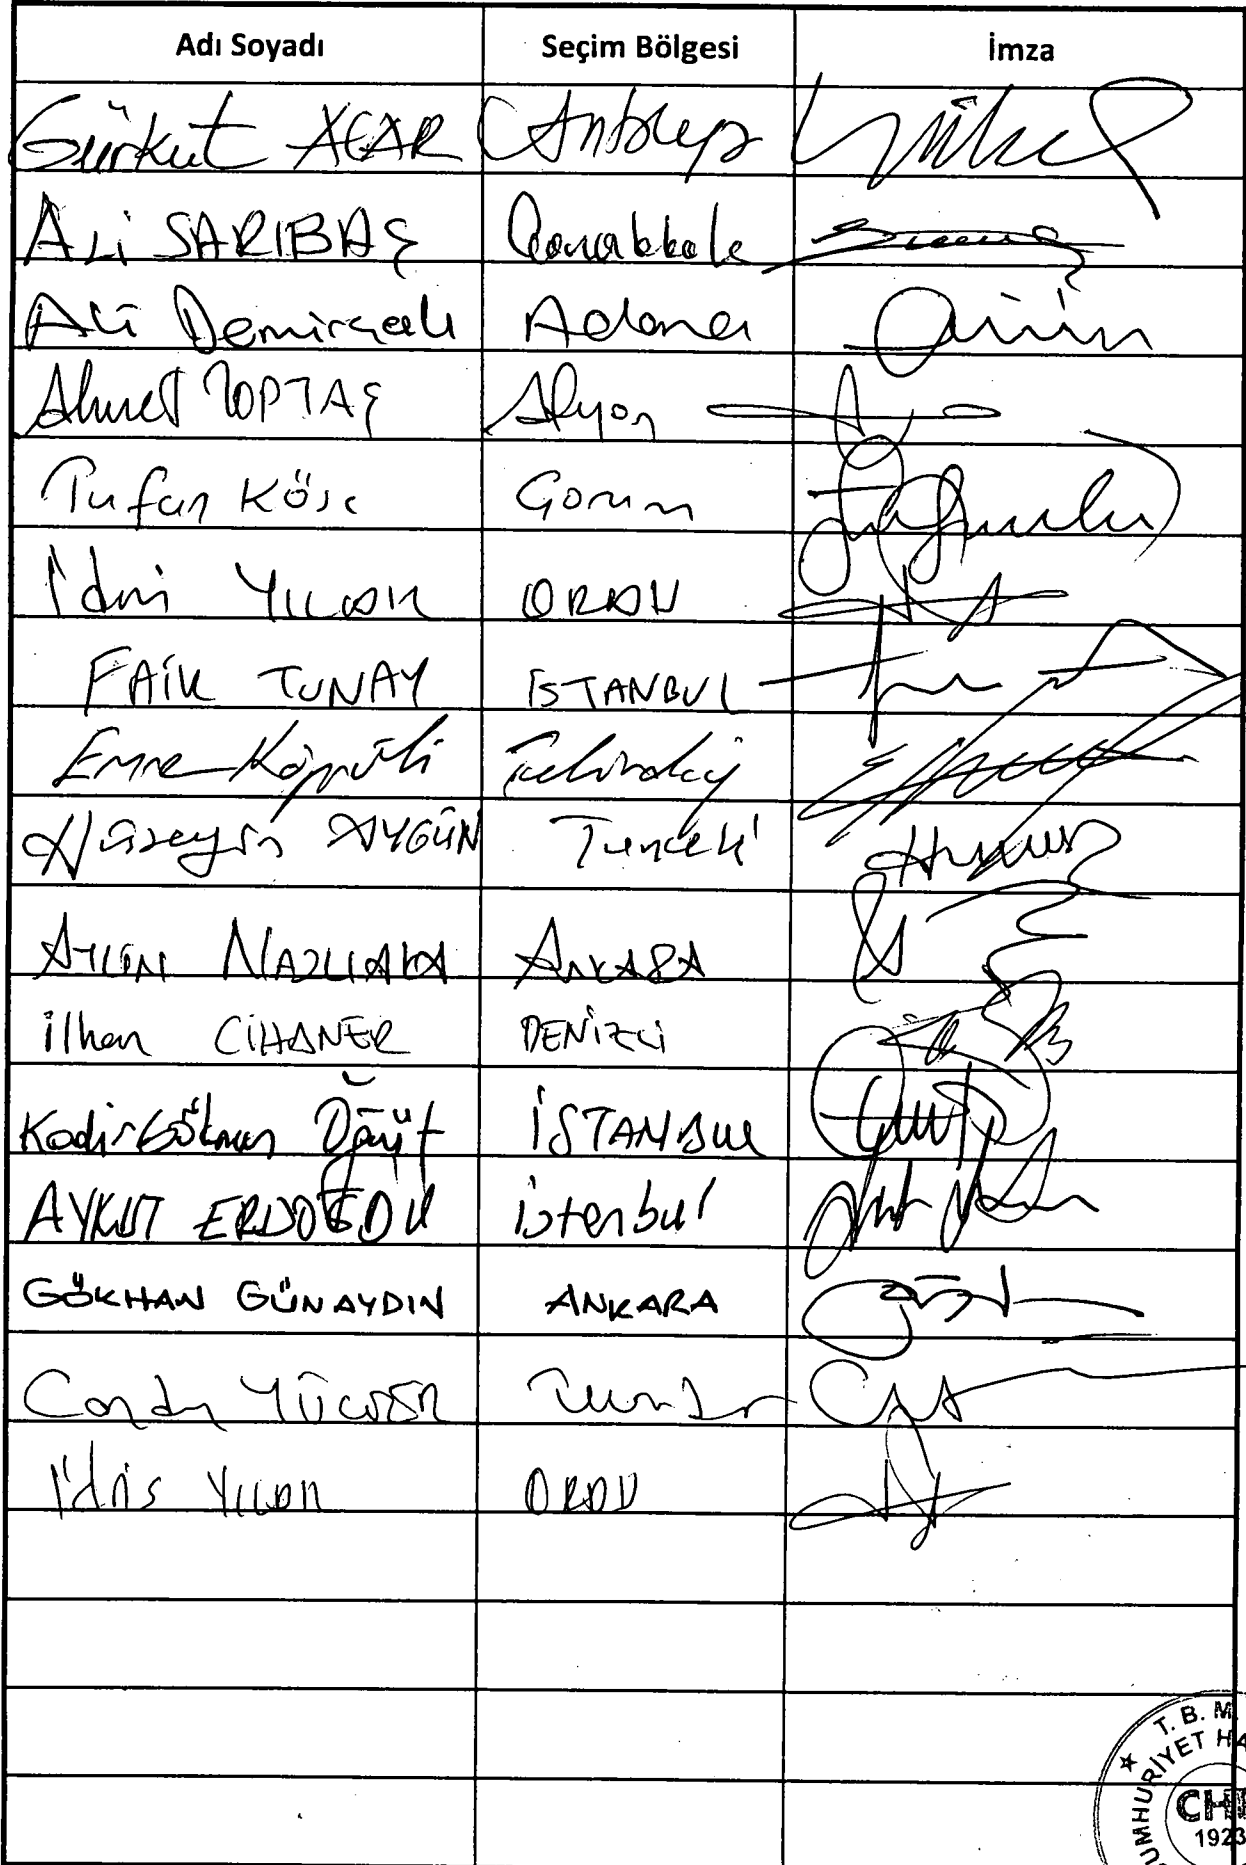 Adı Soyadı Seçim Bölgesi İmza
Gürkut ACAR Antalya
ALİ SARIBAŞ Çanakkale
Ali Demirçalı Adana
Ahmet TOPTAŞ Afyon
Tufan Köse Çorum
İdris YILDIZ ORDU
FAİK TUNAY İSTANBUL
Emre Köprülü Tekirdağ
Hüseyin AYGÜN Tunceli
AYLİN NAZLIAKA ANKARA
İlhan CİHANER DENİZLİ
Kadir Gökmen Öğüt İSTANBUL
AYKUT ERDOĞDU İstanbul
GÖKHAN GÜNAYDIN ANKARA
Candan YÜCEER
İdris YILDIZ ORDU
T. B. M.
CUMHURİYET HA
CH
1923